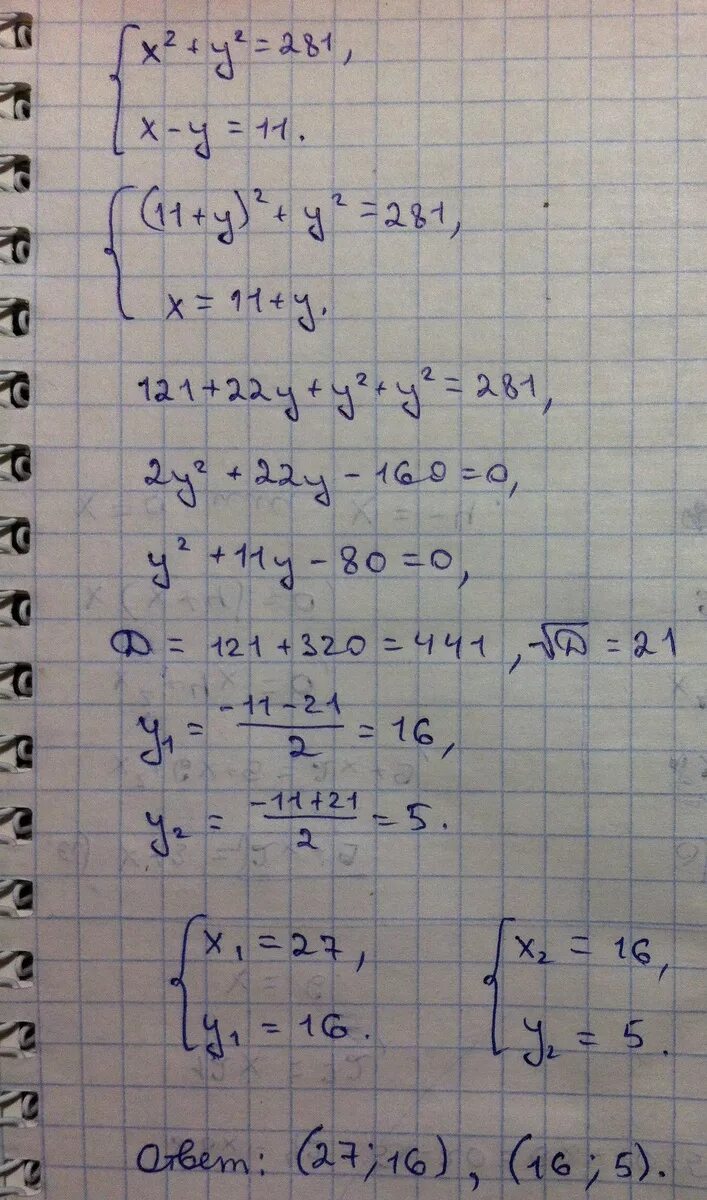 { x² + y² = 281,
x - y = 11.
{ (11 + y)² + y² = 281,
x = 11 + y.
121 + 22y + y² + y² = 281,
2y² + 22y - 160 = 0,
y² + 11y - 80 = 0,
D = 121 + 320 = 441, √D = 21
y₁ = (-11 - 21)/2 = 16,
y₂ = (-11 + 21)/2 = 5.
{ x₁ = 27, { x₂ = 16,
y₁ = 16. y₂ = 5.
Ответ: (27; 16), (16; 5).